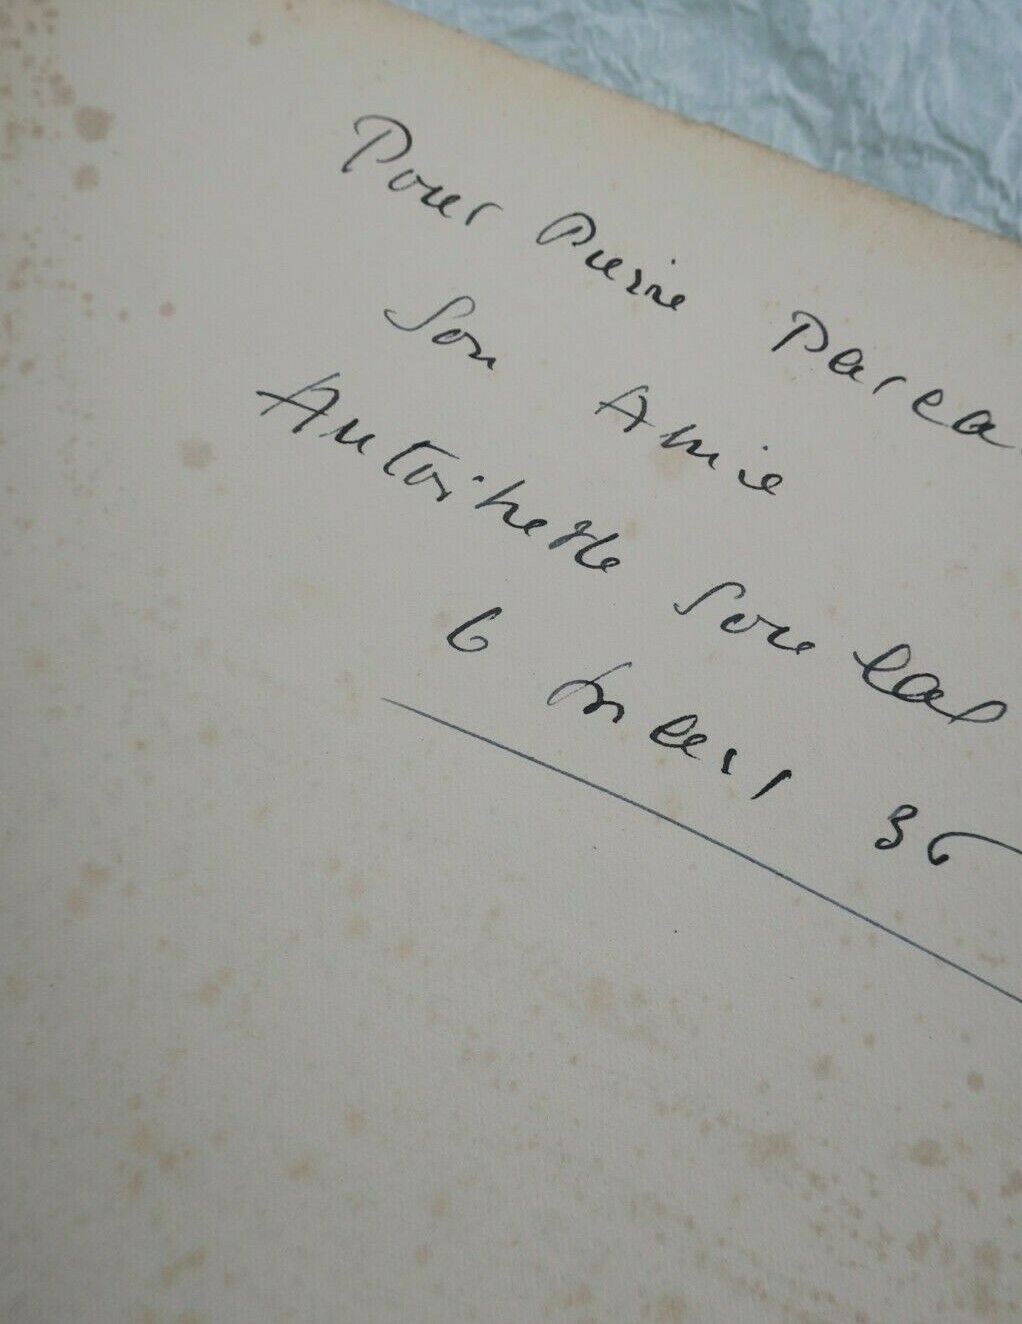 Pour Pierre Parea
Son Amie
Antoinette Sore
6 Mars 36